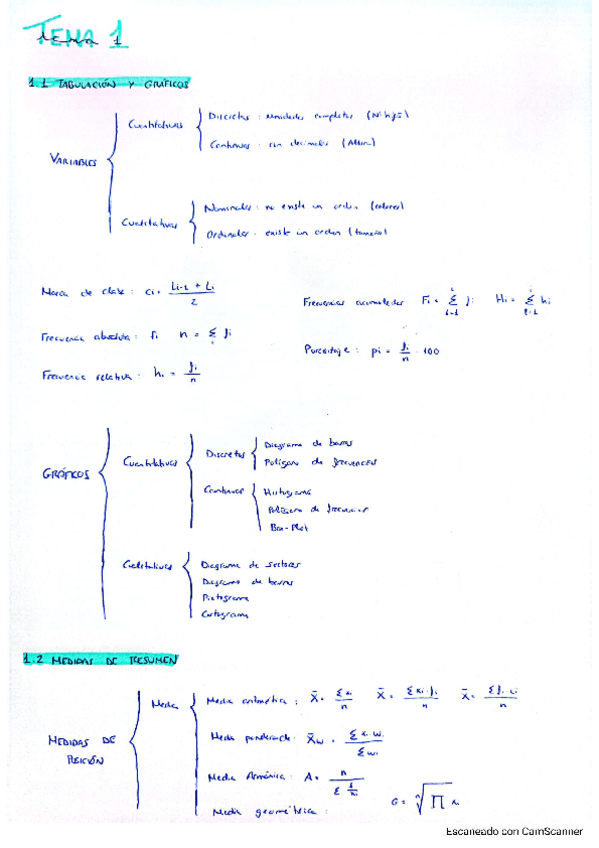 TEMA 1
1.1 TABULACIÓN Y GRÁFICOS
VARIABLES
Cuantitativas
Discretas : unidades completas (Nº hijos)
Continuas : con decimales (Altura)
Cualitativas
Nominales : no existe un orden (colores)
Ordinales : existe un orden (tamaño)
Marca de clase : ci = (Li-1 + Li) / 2
Frecuencias acumuladas Fi = Σ fi Hi = Σ hi
Frecuencia absoluta : fi n = Σ fi
Porcentaje : pi = fi/n · 100
Frecuencia relativa : hi = fi/n
GRÁFICOS
Cuantitativas
Discretas
Diagrama de barras
Polígono de frecuencias
Continuas
Histograma
Polígono de frecuencias
Box-Plot
Cualitativas
Diagrama de sectores
Diagrama de barras
Pictograma
Cartograma
1.2 MEDIDAS DE RESUMEN
MEDIDAS DE POSICIÓN
Media
Media aritmética : X̄ = Σ xi / n X̄ = Σ xi · fi / n X̄ = Σ fi · ci / n
Media ponderada : X̄w = Σ xi wi / Σ wi
Media Armónica : A = n / Σ 1/xi
Media geométrica : G = ⁿ√ ∏ xi
Escaneado con CamScanner